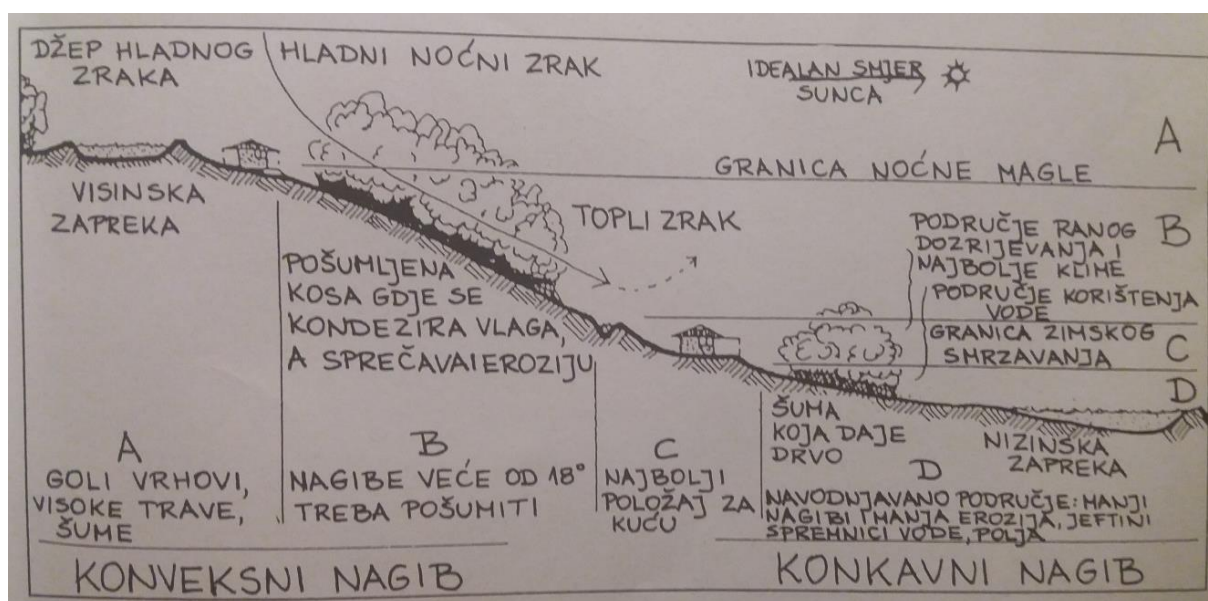 DŽEP HLADNOG
ZRAKA
HLADNI NOĆNI ZRAK
IDEALAN SMJER
SUNCA
A
GRANICA NOĆNE MAGLE
VISINSKA
ZAPREKA
TOPLI ZRAK
PODRUČJE RANOG
DOZRIJEVANJA I
NAJBOLJE KLIME
B
PODRUČJE KORIŠTENJA
VODE
GRANICA ZIMSKOG
SMRZAVANJA
C
D
POŠUMLJENA
KOSA GDJE SE
KONDEZIRA VLAGA,
A SPREČAVA I EROZIJU
ŠUMA
KOJA DAJE
DRVO
NIZINSKA
ZAPREKA
A
GOLI VRHOVI,
VISOKE TRAVE,
ŠUME
B
NAGIBE VEĆE OD 18°
TREBA POŠUMITI
C
NAJBOLJI
POLOŽAJ ZA
KUĆU
D
NAVODNJAVANO PODRUČJE: MANJI
NAGIBI I MANJA EROZIJA, JEFTINI
SPREMNICI VODE, POLJA
KONVEKSNI NAGIB
KONKAVNI NAGIB